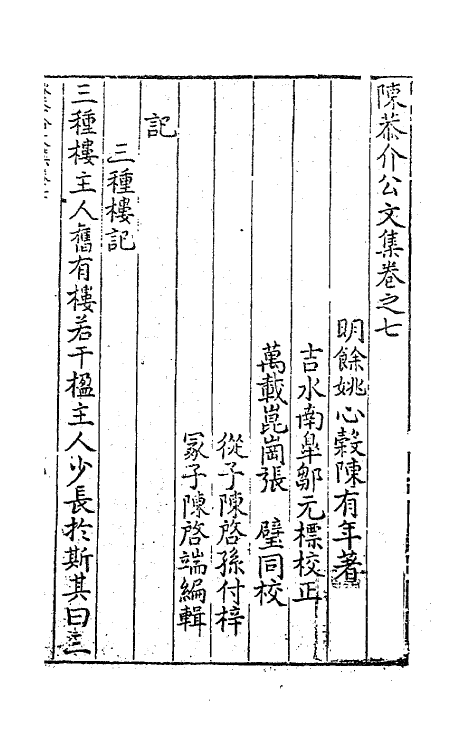 陳恭介公文集卷之七
明餘姚心穀陳有年著
吉水南臯鄒元標校正
萬載崑崗張　璧同校
從子陳啓孫付梓
冢子陳啓端編輯
記
三種樓記
三種樓主人舊有樓若干楹主人少長於斯其曰三